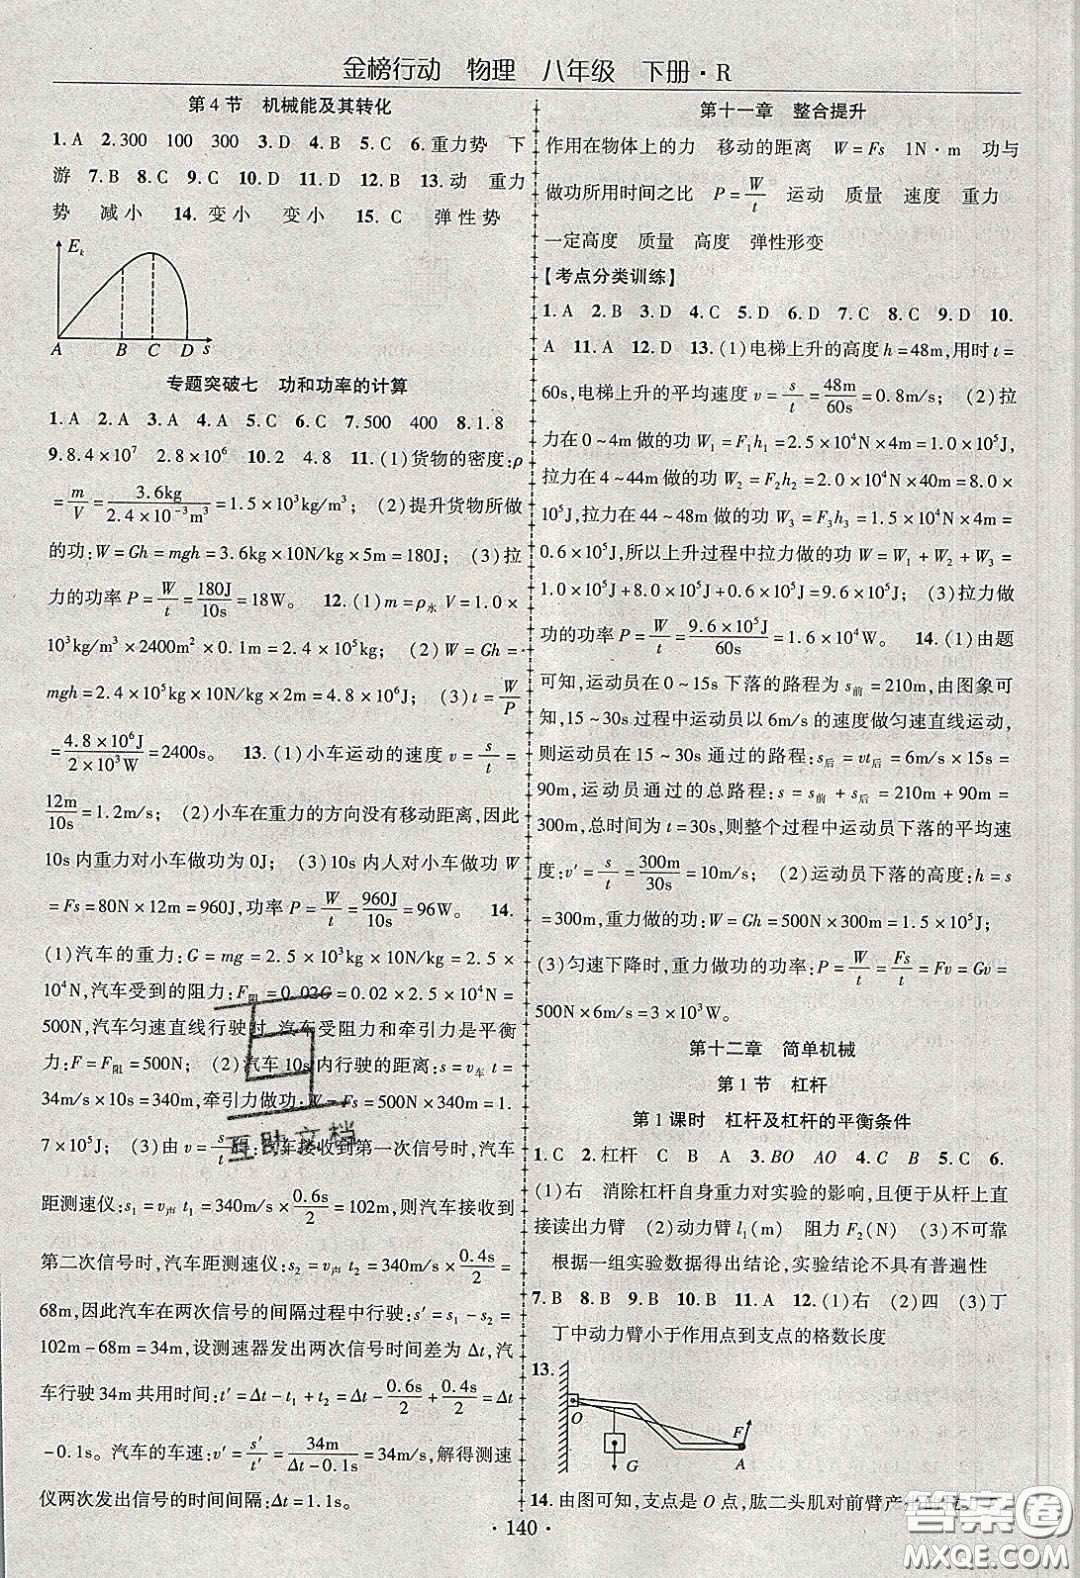 金榜行动 物理 八年级 下册·R
第4节 机械能及其转化
1.A 2.300 100 300 3.D 4.B 5.C 6.重力势 下
游 7.B 8.C 9.C 10.D 11.D 12.B 13.动 重力
势 减小 14.变小 变小 15.C 弹性势
E_k
A B C D s
专题突破七 功和功率的计算
1.A 2.A 3.A 4.A 5.C 6.C 7.500 400 8.1.8
9.8.4×10⁷ 2.8×10⁶ 10.2 4.8 11.(1)货物的密度:ρ
=m/V=3.6kg/2.4×10⁻³m³=1.5×10³kg/m³; (2)提升货物所做
的功:W=Gh=mgh=3.6kg×10N/kg×5m=180J; (3)拉
力的功率P=W/t=180J/10s=18W。 12.(1)m=ρ水V=1.0×
10³kg/m³×2400m²×0.1m=2.4×10⁵kg; (2)W=Gh=
mgh=2.4×10⁵kg×10N/kg×2m=4.8×10⁶J; (3)t=W/P
=4.8×10⁶J/2×10³W=2400s。 13.(1)小车运动的速度v=s/t=
12m/10s=1.2m/s; (2)小车在重力的方向没有移动距离,因此
10s内重力对小车做功为0J; (3)10s内人对小车做功W
=Fs=80N×12m=960J,功率P=W/t=960J/10s=96W。 14.
(1)汽车的重力:G=mg=2.5×10³kg×10N/kg=2.5×
10⁴N,汽车受到的阻力:F阻=0.02G=0.02×2.5×10⁴N=
500N,汽车匀速直线行驶时,汽车受阻力和牵引力是平衡
力:F=F阻=500N; (2)汽车10s内行驶的距离:s=v车t=
34m/s×10s=340m,牵引力做功:W=Fs=500N×340m=1.
7×10⁵J; (3)由v=s/t得:汽车接收到第一次信号时,汽车
距测速仪:s₁=v声t₁=340m/s×0.6s/2=102m,则汽车接收到
第二次信号时,汽车距测速仪:s₂=v声t₂=340m/s×0.4s/2=
68m,因此汽车在两次信号的间隔过程中行驶:s′=s₁-s₂=
102m-68m=34m,设测速器发出两次信号时间差为Δt,汽
车行驶34m共用时间:t′=Δt-t₁+t₂=Δt-0.6s/2+0.4s/2=Δt
-0.1s。汽车的车速:v′=s′/t′=34m/Δt-0.1s=34m/s,解得测速
仪两次发出信号的时间间隔:Δt=1.1s。
第十一章 整合提升
作用在物体上的力 移动的距离 W=Fs 1N·m 功与
做功所用时间之比 P=W/t 运动 质量 速度 重力
一定高度 质量 高度 弹性形变
【考点分类训练】
1.A 2.B 3.D 4.C 5.D 6.C 7.D 8.C 9.D 10.
A 11.A 12.D 13.(1)电梯上升的高度h=48m,用时t=
60s,电梯上升的平均速度v=s/t=48m/60s=0.8m/s; (2)拉
力在0~4m做的功W₁=F₁h₁=2.5×10⁴N×4m=1.0×10⁵J,
拉力在4~44m做的功W₂=F₂h₂=2.0×10⁴N×40m=8.0×
10⁵J,拉力在44~48m做的功W₃=F₃h₃=1.5×10⁴N×4m=
0.6×10⁵J,所以上升过程中拉力做的功W=W₁+W₂+W₃=
1.0×10⁵J+8.0×10⁵J+0.6×10⁵J=9.6×10⁵J; (3)拉力做
功的功率P=W/t=9.6×10⁵J/60s=1.6×10⁴W。 14.(1)由题
可知,运动员在0~15s下落的路程为s前=210m,由图象可
知,15~30s过程中运动员以6m/s的速度做匀速直线运动,
则运动员在15~30s通过的路程:s后=vt后=6m/s×15s=
90m,运动员通过的总路程:s=s前+s后=210m+90m=
300m,总时间为t=30s,则整个过程中运动员下落的平均速
度:v′=s/t=300m/30s=10m/s; (2)运动员下落的高度:h=s
=300m,重力做的功:W=Gh=500N×300m=1.5×10⁵J;
(3)匀速下降时,重力做功的功率:P=W/t=Fs/t=Fv=Gv=
500N×6m/s=3×10³W。
第十二章 简单机械
第1节 杠杆
第1课时 杠杆及杠杆的平衡条件
1.C 2.杠杆 C B A 3.BO AO 4.C B 5.C 6.
(1)右 消除杠杆自身重力对实验的影响,且便于从杆上直
接读出力臂 (2)动力臂l₁(m) 阻力F₂(N) (3)不可靠
根据一组实验数据得出结论,实验结论不具有普遍性
7.B 8.B 9.B 10.B 11.A 12.(1)右 (2)四 (3)丁
丁中动力臂小于作用点到支点的格数长度
13.
O F G A
14.由图可知,支点是O点,肱二头肌对前臂产
·140·
互助文档
答案圈
MXQE.COM